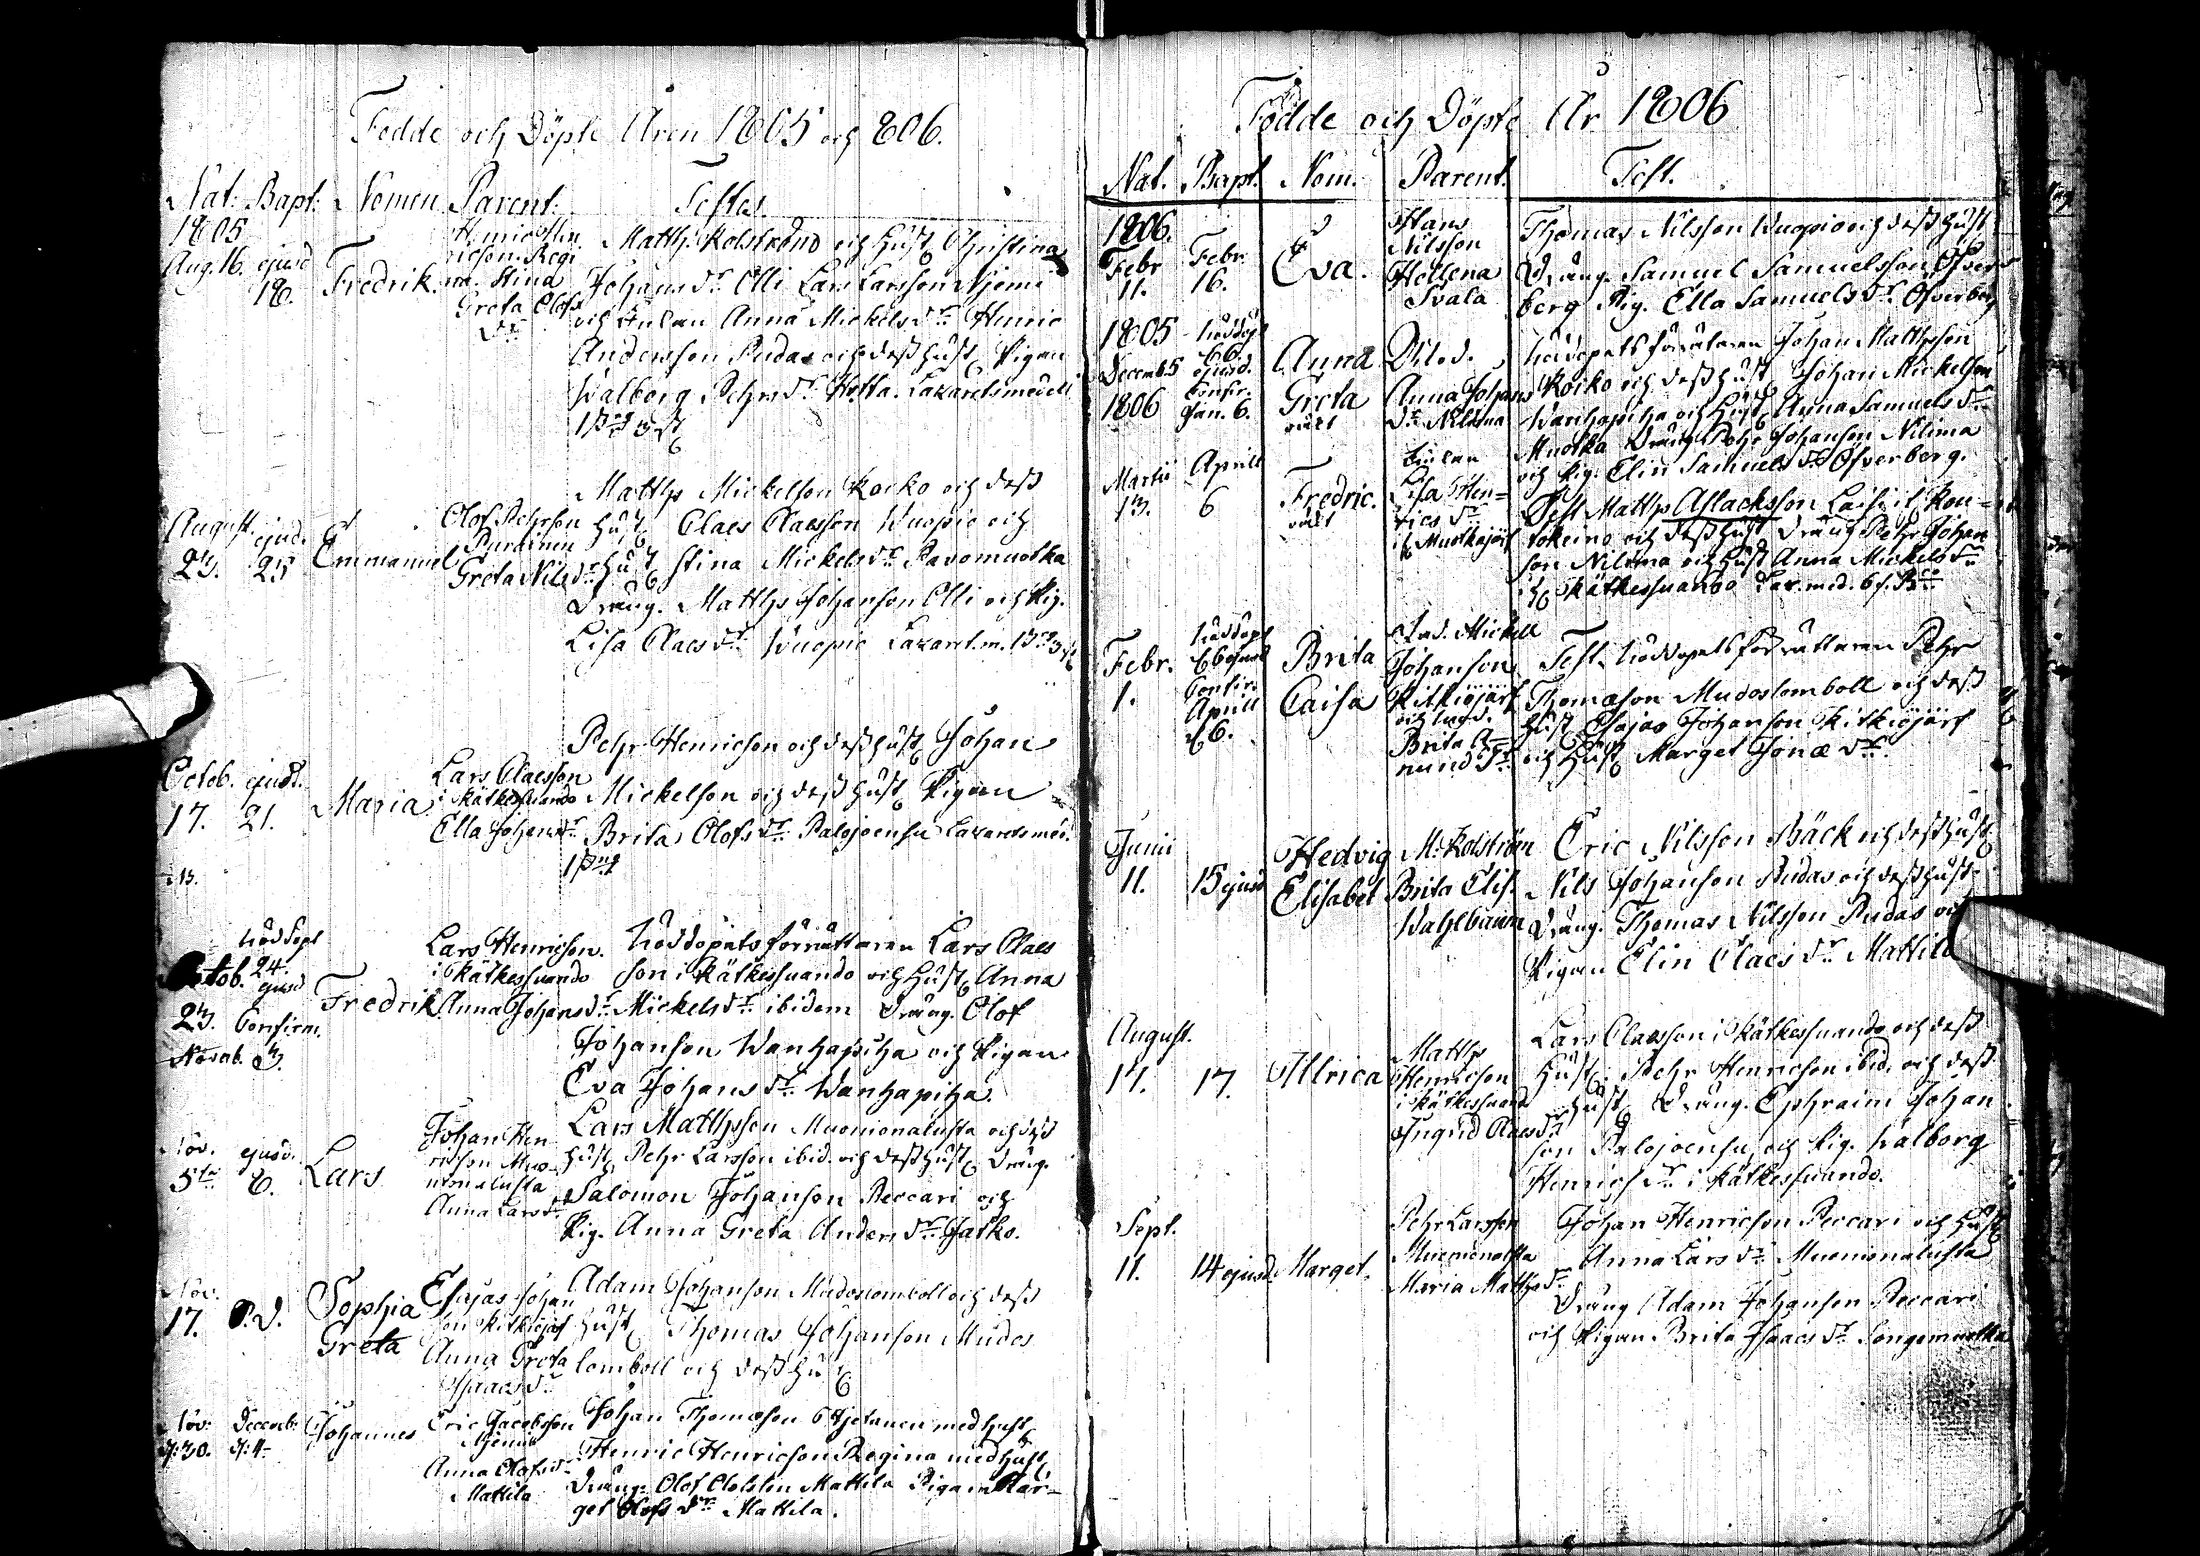 Fodde och Döpte Åren 1805 och 806.
Nat: Bapt: Nomen Parent: Testes.
1805
Aug. 16. ejusd 18.
Fredrik.
Henric Hen
ricson Regi
na. Stina
Greta Olofs
dr
Matth. Kolström och Hust. Christina
Johans dr Olli Lars Larsson Njemi
och Enkan Anna Mickels dr Henric
Andersson Rudas och dess hust. Pigan
Walborg Pehrs dr Hetta. Lazaretsmedell
August. ejusd.
23. 25
Emmanuel
Olof Pehrson
Puranen
Greta Nils dr
Matths Mickelson Kocko och dess
Hust. Claes Claesson Wuopio och
Hust. Stina Mickels dr Ravomuotka
Dräng. Matths Johanson Olli och Pig.
Lisa Claes dr Wuopio Lazaret. m.
Octob. ejusd.
17. 21.
Maria
Lars Claesson
i Kätkesuando
Ella Johans dr
Pehr Henricson och dess hust. Johan
Mickelson och dess hust. Pigan
Brita Olofs dr Palojoensu Lazaretsmed.
Octob. 23.
Nöddöpt
24.
ejusd
Confirm.
Novemb. 3.
Fredrik
Lars Henricson.
i Kätkesuando
Anna Johans dr
Nöddopets förrättaren Lars Claes
son i Kätkesuando och Hust. Anna
Mickels dr ibidem Dräng. Olof
Johanson Wanhapiha och Pigan
Eva Johans dr Wanhapiha.
Nov. ejusd.
5te 8.
Lars
Johan Hen
ricson Muo
nionalusta
Anna Lars dr
Lars Matthsson Muonionalusta och dess
hust. Pehr Larsson ibid. och dess hust. Dräng.
Salomon Johanson Peccari och
Pig. Anna Greta Anders dr Jatko.
Nov.
17. e. d.
Sophia
Greta
Esajas Johan
son Kitkiojärf
Anna Greta
Isaacs dr
Adam Johanson Mudoslomboll och dess
Hust. Thomas Johanson Mudos
lomboll och dess hu
Nov: d: 30. Decemb: d: 4
Johannes
Eric Jacobsson
Njemi
Anna Olofs dr
Mattila
Johan Thomæson Ofjetanen med hust.
Henric Henricson Regina med hust.
Dräng: Olof Olofson Mattila Pigan Mar-
get Olofs dr Mattila.
Födde och Döpte År 1806
Nat. Bapt. Nom. Parent. Test.
1806.
Febr 11.
Febr. 16.
Eva.
Hans
Nilsson
Hellena
Svala
Thomas Nilsson Wuopio och dess hust
Dräng. Samuel Samuelsson Öfver
berg Pig. Ella Samuels dr Öfverberg
1805
Decemb 5
1806
Nöddöpt
ejusd.
Confir.
Jan. 6.
Anna
Greta
Anna Johans
dr Nilima
Nöddopets förrättaren Johan Matthsson
Kocko och dess hust Johan Mickelson
Wanhapiha och hust Anna Samuels dr
Muotka Dräng Pehr Johanson Nilima
och Pig. Elin Samuels dr Öfverberg.
Martii 13.
Aprill 6
Fredric.
Enkan
Lisa Hen=
rics dr
Muotkajärf
Test Matths Aslacksson Laiti i Kou=
tokeino och dess hust Dräng Pehr Johan
son Nilima och Hust Anna Mickels dr
Kätkesuando Laz. med. 6 s. Bco
Febr. 1.
Nöddöpt
ejusd
Confir.
Aprill
6.
Brita
Caisa
Mickell
Johanson
Kitkiojärf
och hust.
Brita A
mund dr
Test. Nöddopets förrättaren Pehr
Thomæson Mudoslomboll och dess
hust Esajas Johanson Kitkiojärf
och Hust Marget Jonæ dr.
Junii
11. 15 ejusd
Hedvig
Elisabet
M. Kolström
Brita Elis.
Wahlbaum
Eric Nilsson Bäck och dess hust.
Nils Johanson Rudas och dess hust.
Dräng. Thomas Nilsson Rudas och
Pigan Elin Claes dr Mattila
August.
17. 17.
Ullrica
Matths
Henricson
i Kätkesuando
Ingrid Claes dr
Lars Claesson i Kätkesuando och dess
Hust. Pehr Henricson ibid. och dess
hust Dräng. Ephraim Johan
son Palojoensu, och Pig. Walborg
Henrics dr i Kätkesuando.
Sept.
11. 14 ejusd.
Marget.
Pehr Larsson
Muonionalusta
Maria Matths dr
Johan Henricson Peccari och Hust
Anna Lars dr Muonionalusta
Dräng Adam Johanson Peccari
och Pigan Brita Isaacs dr Songamuotka